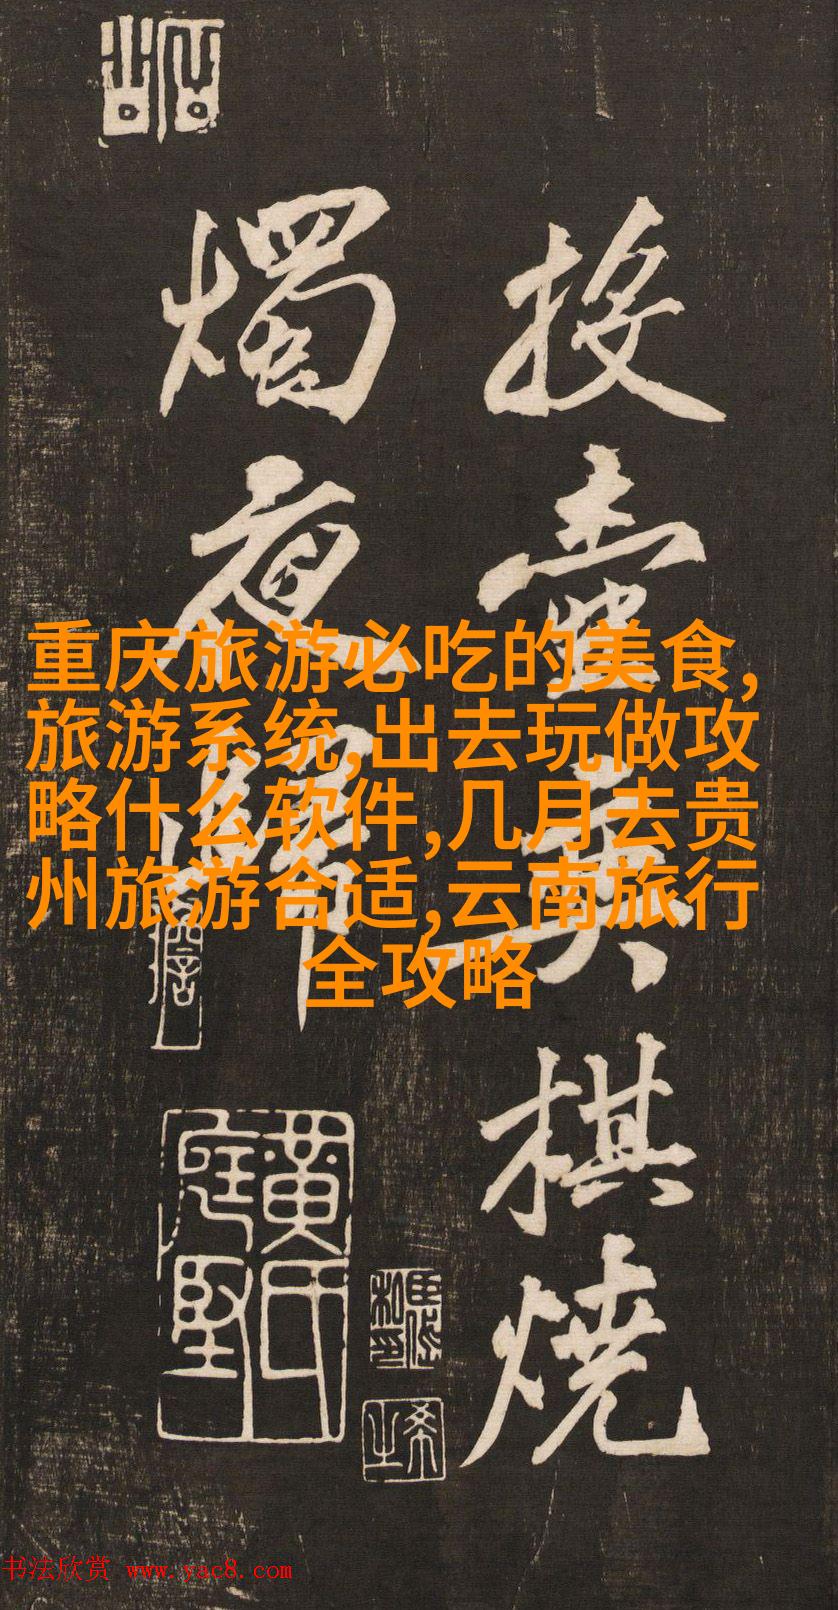 投壺奕棋燒
燭夜歸
重庆旅游必吃的美食,
旅游系统,出去玩做攻
略什么软件,几月去贵
州旅游合适,云南旅行
全攻略
黄氏
庭堅
书法欣赏 www.yac8.com